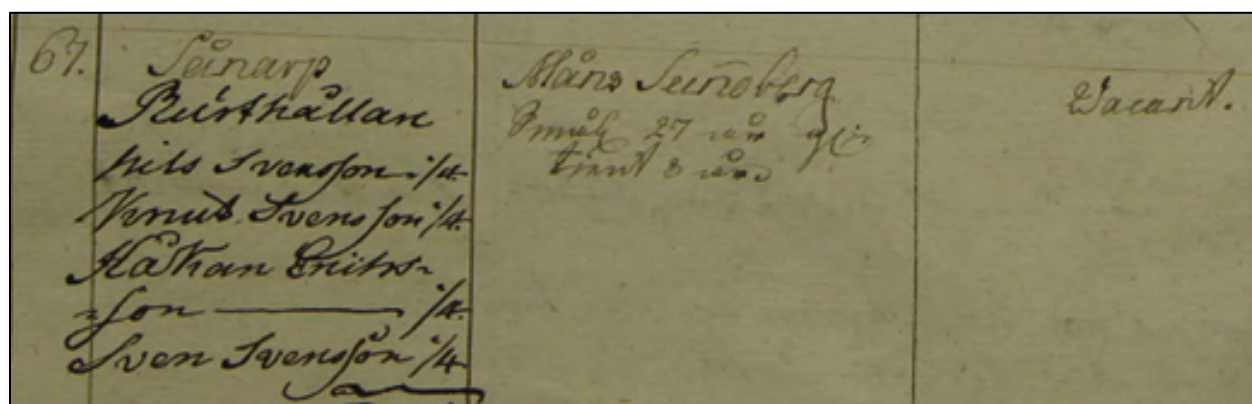 67.
Sånarp
Rusthållare
Nils Svensson 1/4
Knut Svensson 1/4.
Håkan Erichs-
son — 1/4.
Sven Svensson 1/4
Måns Sundberg
Smål. 27 år gift
tient 8 år.
Vacant.